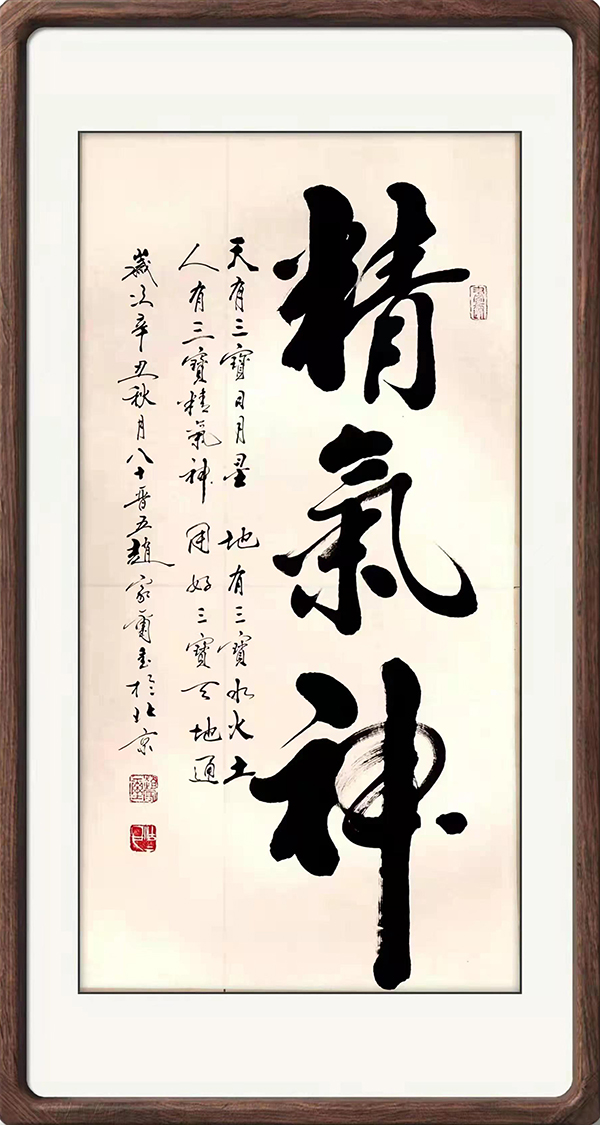 精氣神
天有三寶日月星 地有三寶水火土
人有三寶精氣神 用好三寶天地通
歲次辛丑秋月八十晉五趙家爾書於北京